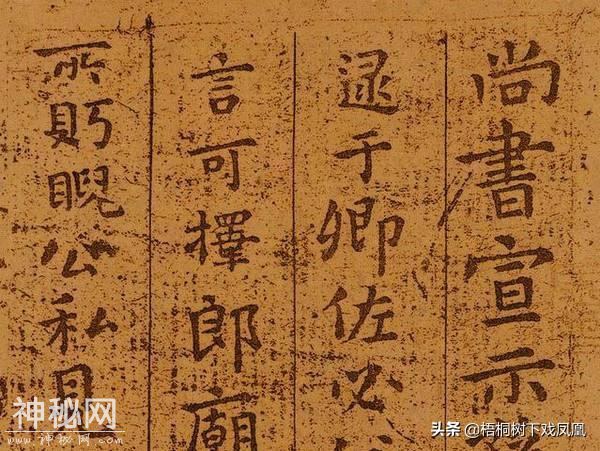 尚書宣示
逮于卿佐必
言可擇郎廟
所眄睨公私
神秘网
www.神秘网.com
头条 @梧桐树下戏凤凰